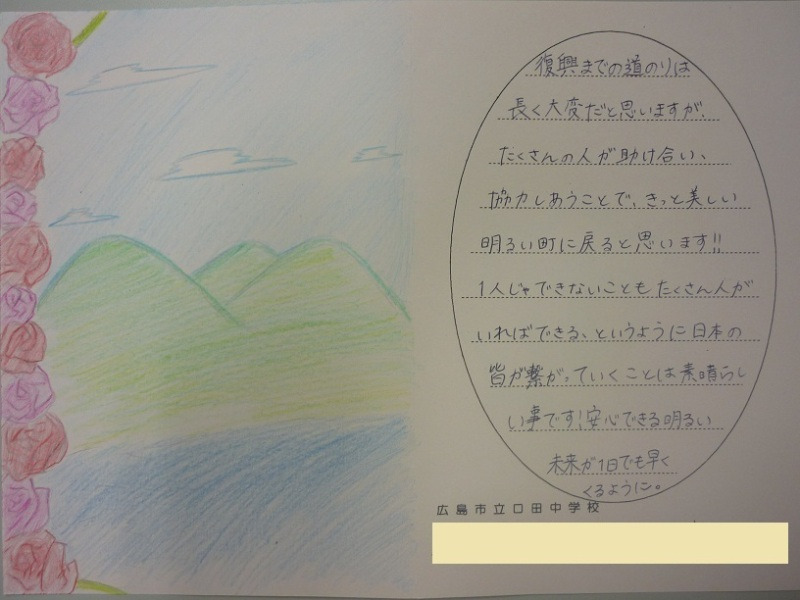 復興までの道のりは
長く大変だと思いますが、
たくさんの人が助け合い、
協力しあうことで、きっと美しい
明るい町に戻ると思います!!
1人じゃできないこともたくさん人が
いればできる、というように日本の
皆が繋がっていくことは素晴らし
い事です!安心できる明るい
未来が1日でも早く
くるように。
広島市立口田中学校